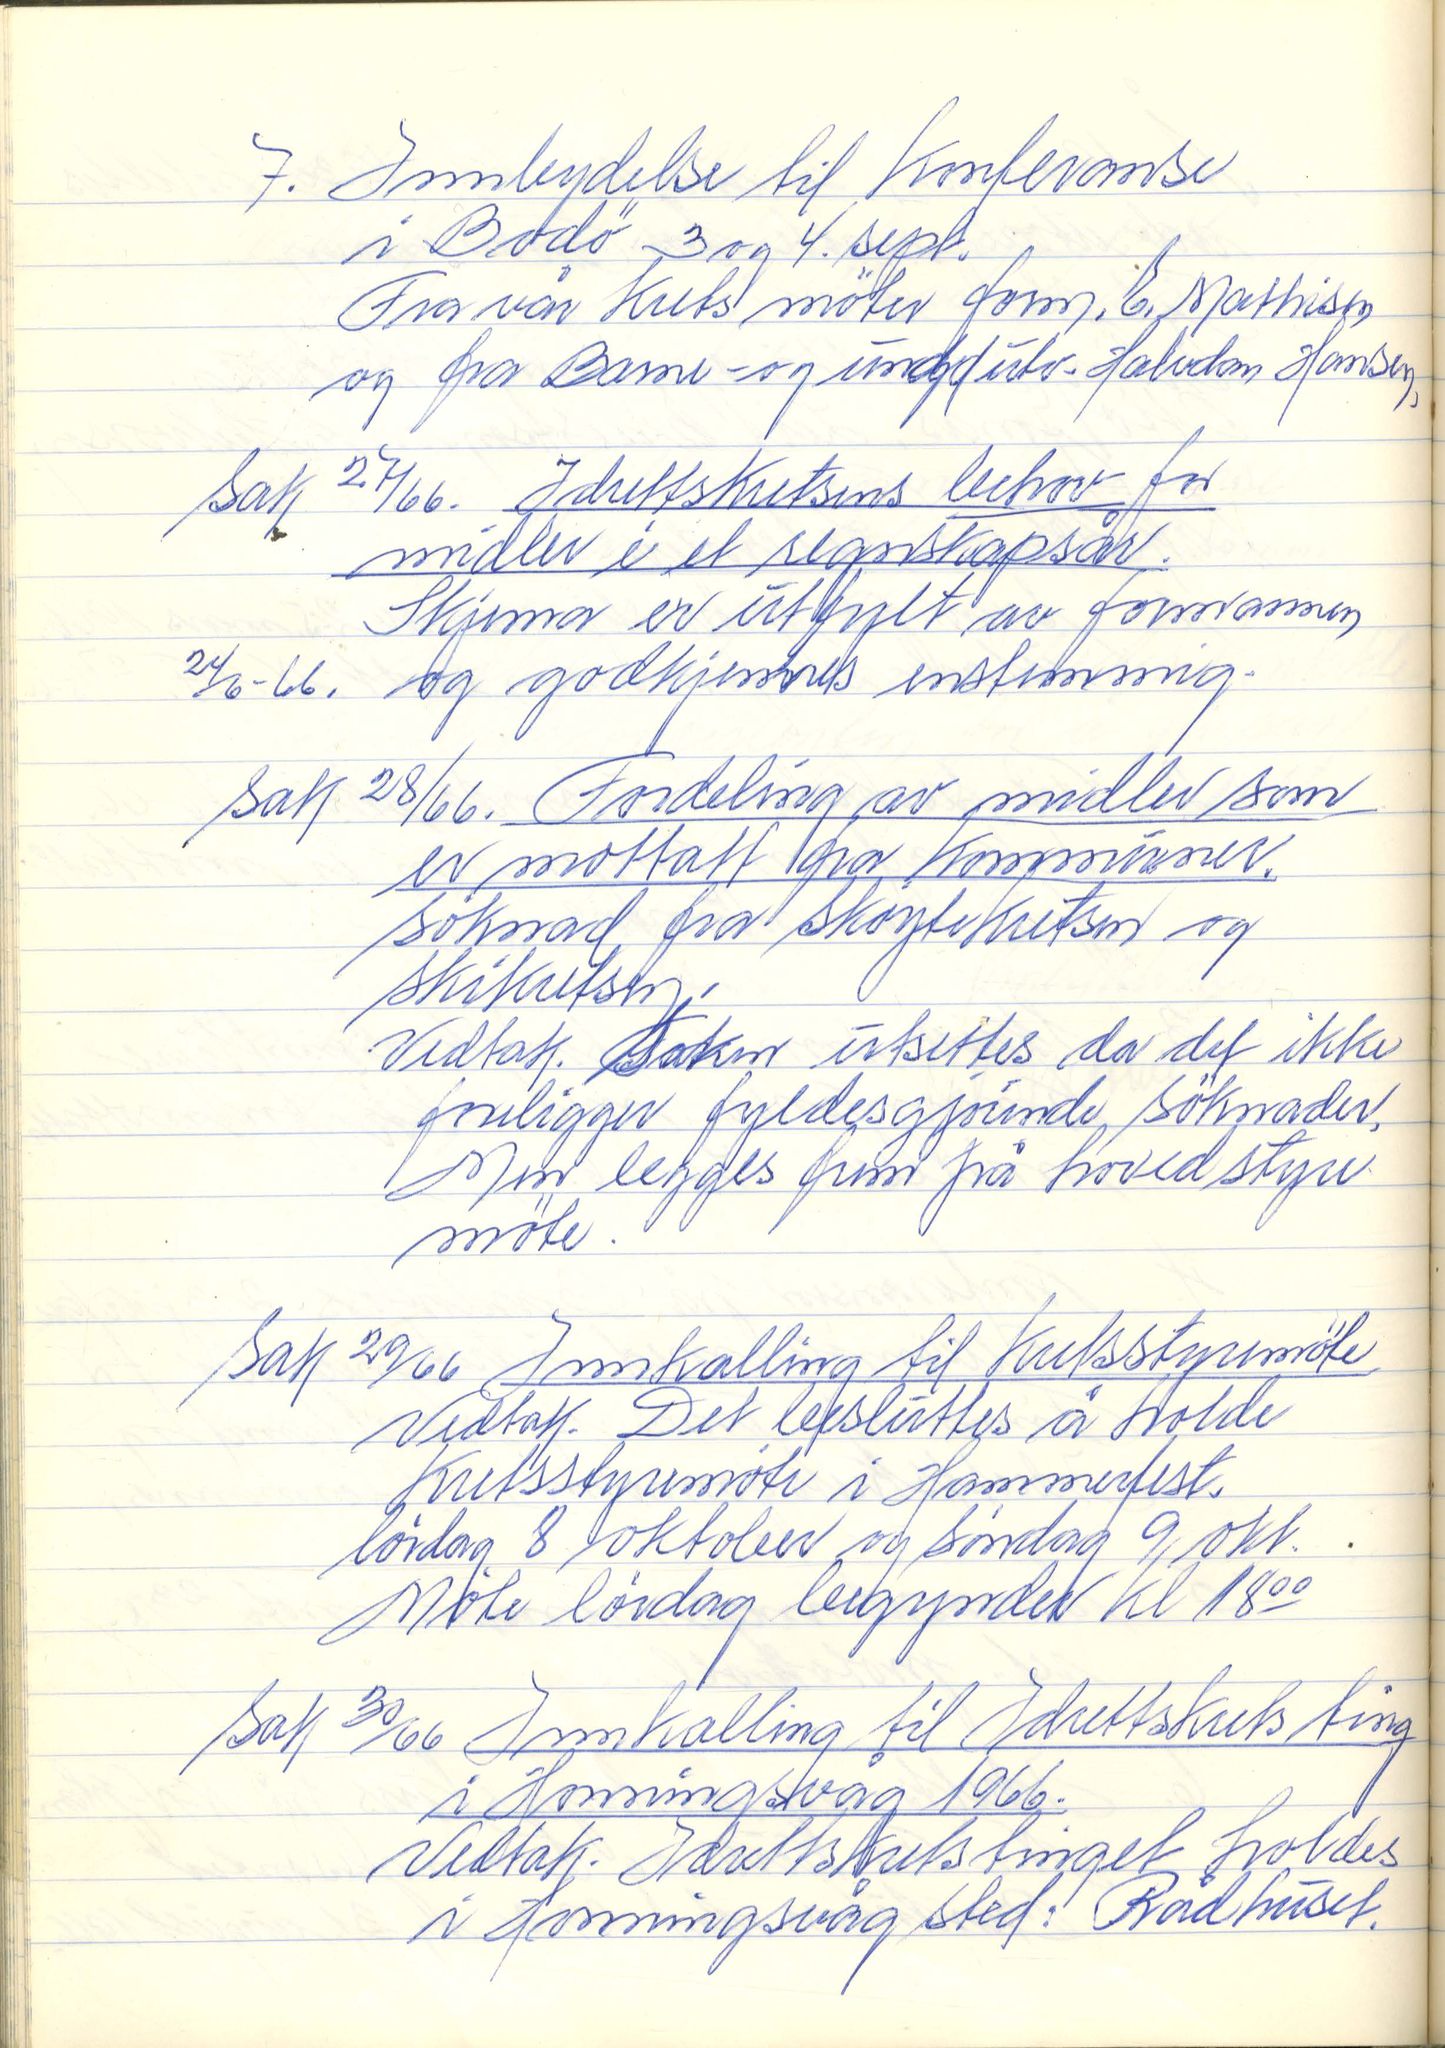 7. Innbydelse til Konferanse
i Bodö 3 og 4. sept.
Fra vår Krets möter form. E. Mathisen
og fra Barne- og ungd utv. Halvdan Hansen.
Sak 27/66. Idrettskretsens behov for
midler i et regnskapsår.
Skjema er utfylt av formannen
24/6-66. og godkjennes enstemmig.
Sak 28/66. Fordeling av midler som
er mottatt fra Kommuner.
Söknad fra Sköytekretsen og
Skikretsen.
Vedtak. Saken utsettes da det ikke
foreligger fyldesgjörende söknader.
Men legges frem på hovedstyre
möte.
Sak 29/66 Innkalling til Kretsstyremöte
Vedtak. Det besluttes å holde
Kretsstyremöte i Hammerfest.
lördag 8 oktober og söndag 9, okt.
Möte lördag begynder Kl 18⁰⁰
Sak 30/66 Innkalling til Idrettskrets ting
i Honningsvåg 1966.
Vedtak. Idrettskretstinget holdes
i Honningsvåg sted: Rådhuset.